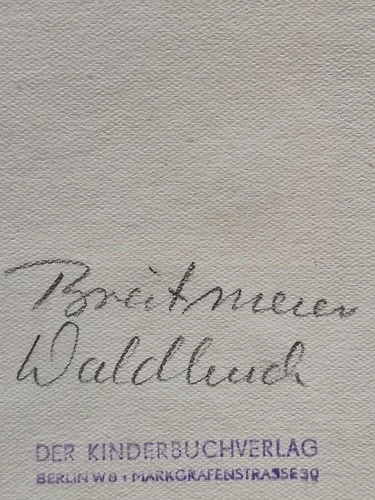 Breitmeier
Waldbuch
DER KINDERBUCHVERLAG
BERLIN W 8 · MARKGRAFENSTRASSE 30